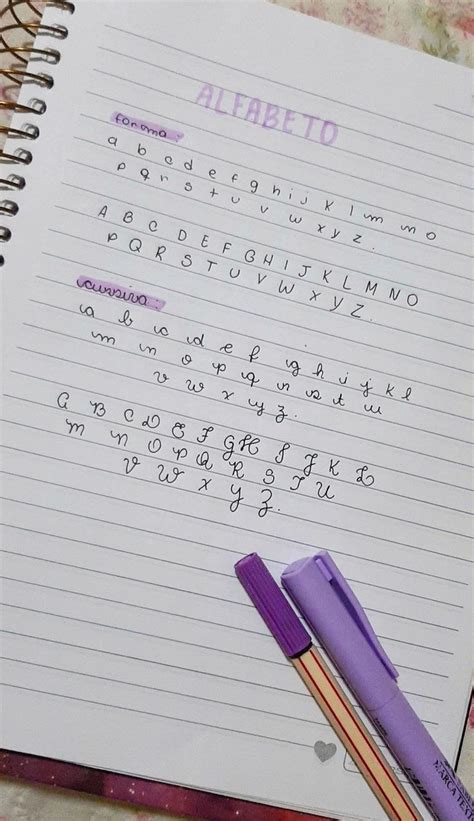 ALFABETO
forma:
a b c d e f g h i j k l m n o
p q r s t u v w x y z.
A B C D E F G H I J K L M N O
P Q R S T U V W X Y Z.
cursiva:
a b c d e f g h i j k l
m n o p q r s t u
v w x y z.
A B C D E F G H I J K L
M N O P Q R S T U
V W X Y Z.